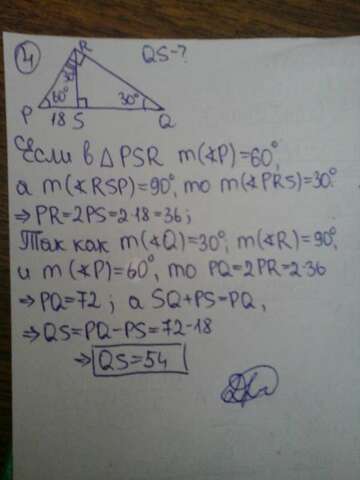 4
QS-?
R
30°
60°
30°
P 18 S Q
Если в △PSR m(∢P)=60°,
а m(∢RSP)=90°, то m(∢PRS)=30°
⇒ PR=2PS=2·18=36;
Так как m(∢Q)=30°; m(∢R)=90°,
и m(∢P)=60°, то PQ=2PR=2·36
⇒ PQ=72; а SQ+PS=PQ,
⇒ QS=PQ-PS=72-18
⇒ QS=54